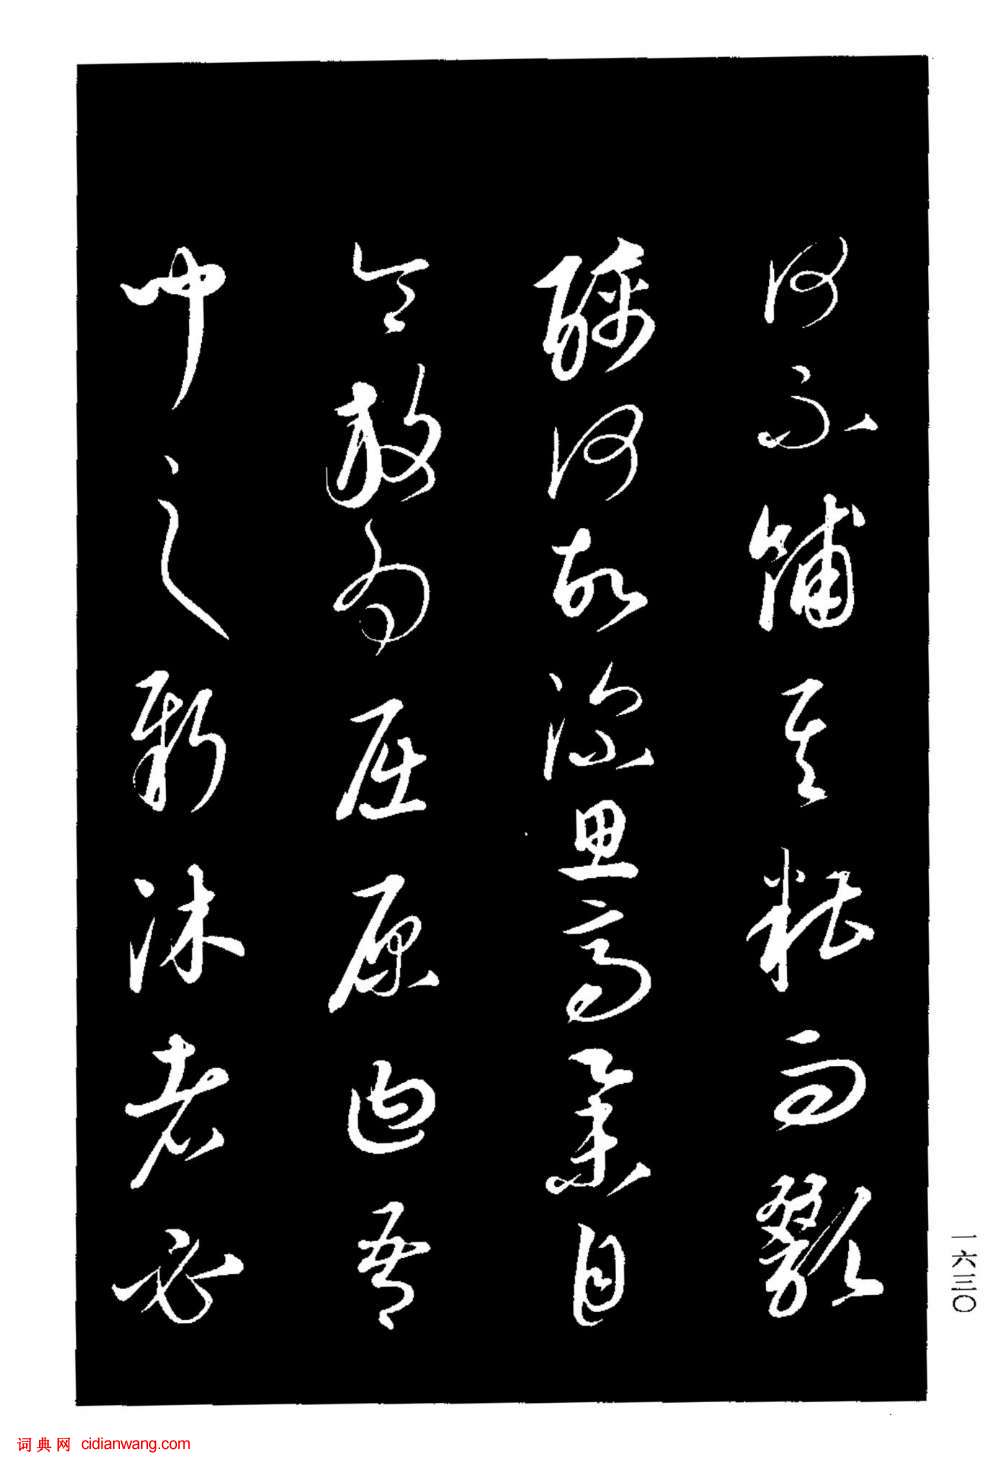 何不餔其糟而歠
醨何故深思高舉自
令放為屈原曰吾
聞之新沐者必
一六三〇
词典网 cidianwang.com